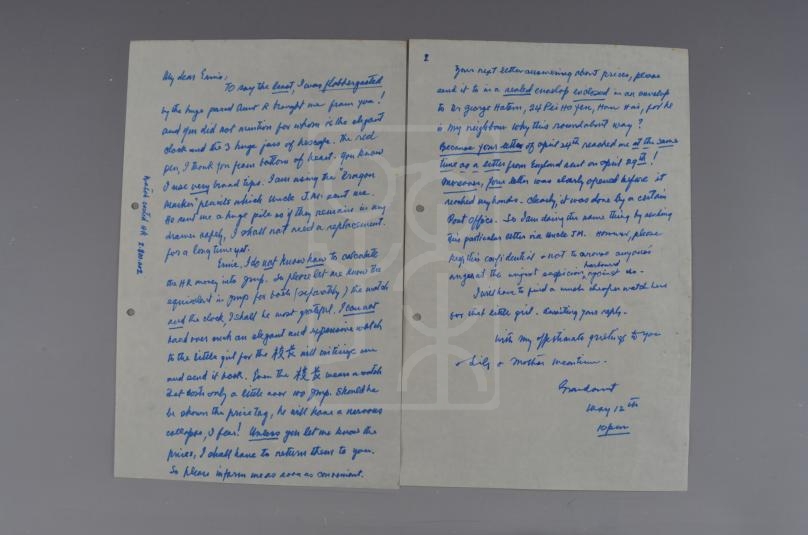 My dear Ernie,
To say the least, I was flabbergasted
by the huge parcel Aunt R brought me from you!
and you did not mention for whom is the elegant
clock and the 3 huge jars of hescafe. The red
pen, I thank you from bottom of heart. You know
I use very broad tips. I am using the "Dragon
Marker" pencils which Uncle T.M. sent me.
He sent me a huge pile so if they remain in any
drawer safely, I shall not need a replacement
for a long time yet.
Ernie, I do not know how to calculate
the HK money into Jmp. So please let me know the
equivalent in Jmp for both (separately) the watch
and the clock, I shall be most grateful. I can not
hand over such an elegant and expensive watch
to the little girl for the 校长 will criticize me
and send it back. Even the 校长 wears a watch
that costs only a little over 100 Jmp. Should he
be shown the price tag, he will have a nervous
collapse, I fear! Unless you let me know the
prices, I shall have to return them to you.
So please inform me as soon as convenient.
2
Your next letter answering about prices, please
send it to in a sealed envelop enclosed in an envelop
to Dr George Hatem, 24 Hou Hai, for he
is my neighbour why this roundabout way?
Because your letter of April 24th reached me at the same
time as a letter from England sent on April 29th!
Moreover, your letter was clearly opened before it
reached my hands. Clearly, it was done by a certain
Post Office. So I am doing the same thing by sending
this particular letter via Uncle T.M. However, please
keep this confidential & not to arouse anyone's
anger at the unjust suspicion harboured against me.
I will have to find a much cheaper watch here
for that little girl. Awaiting your reply.
With my affectionate greetings to you
& Lily & Mother
Grandaunt
May 12th
10 pm